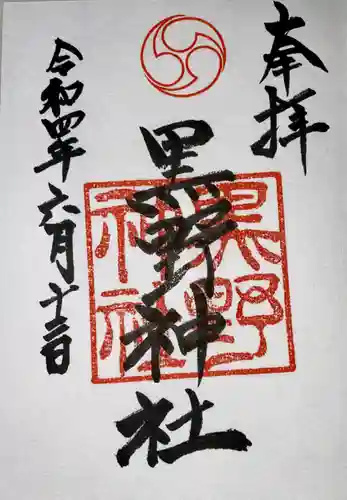 奉拝
黒野神社
黒野
神社
令和四年六月十三日